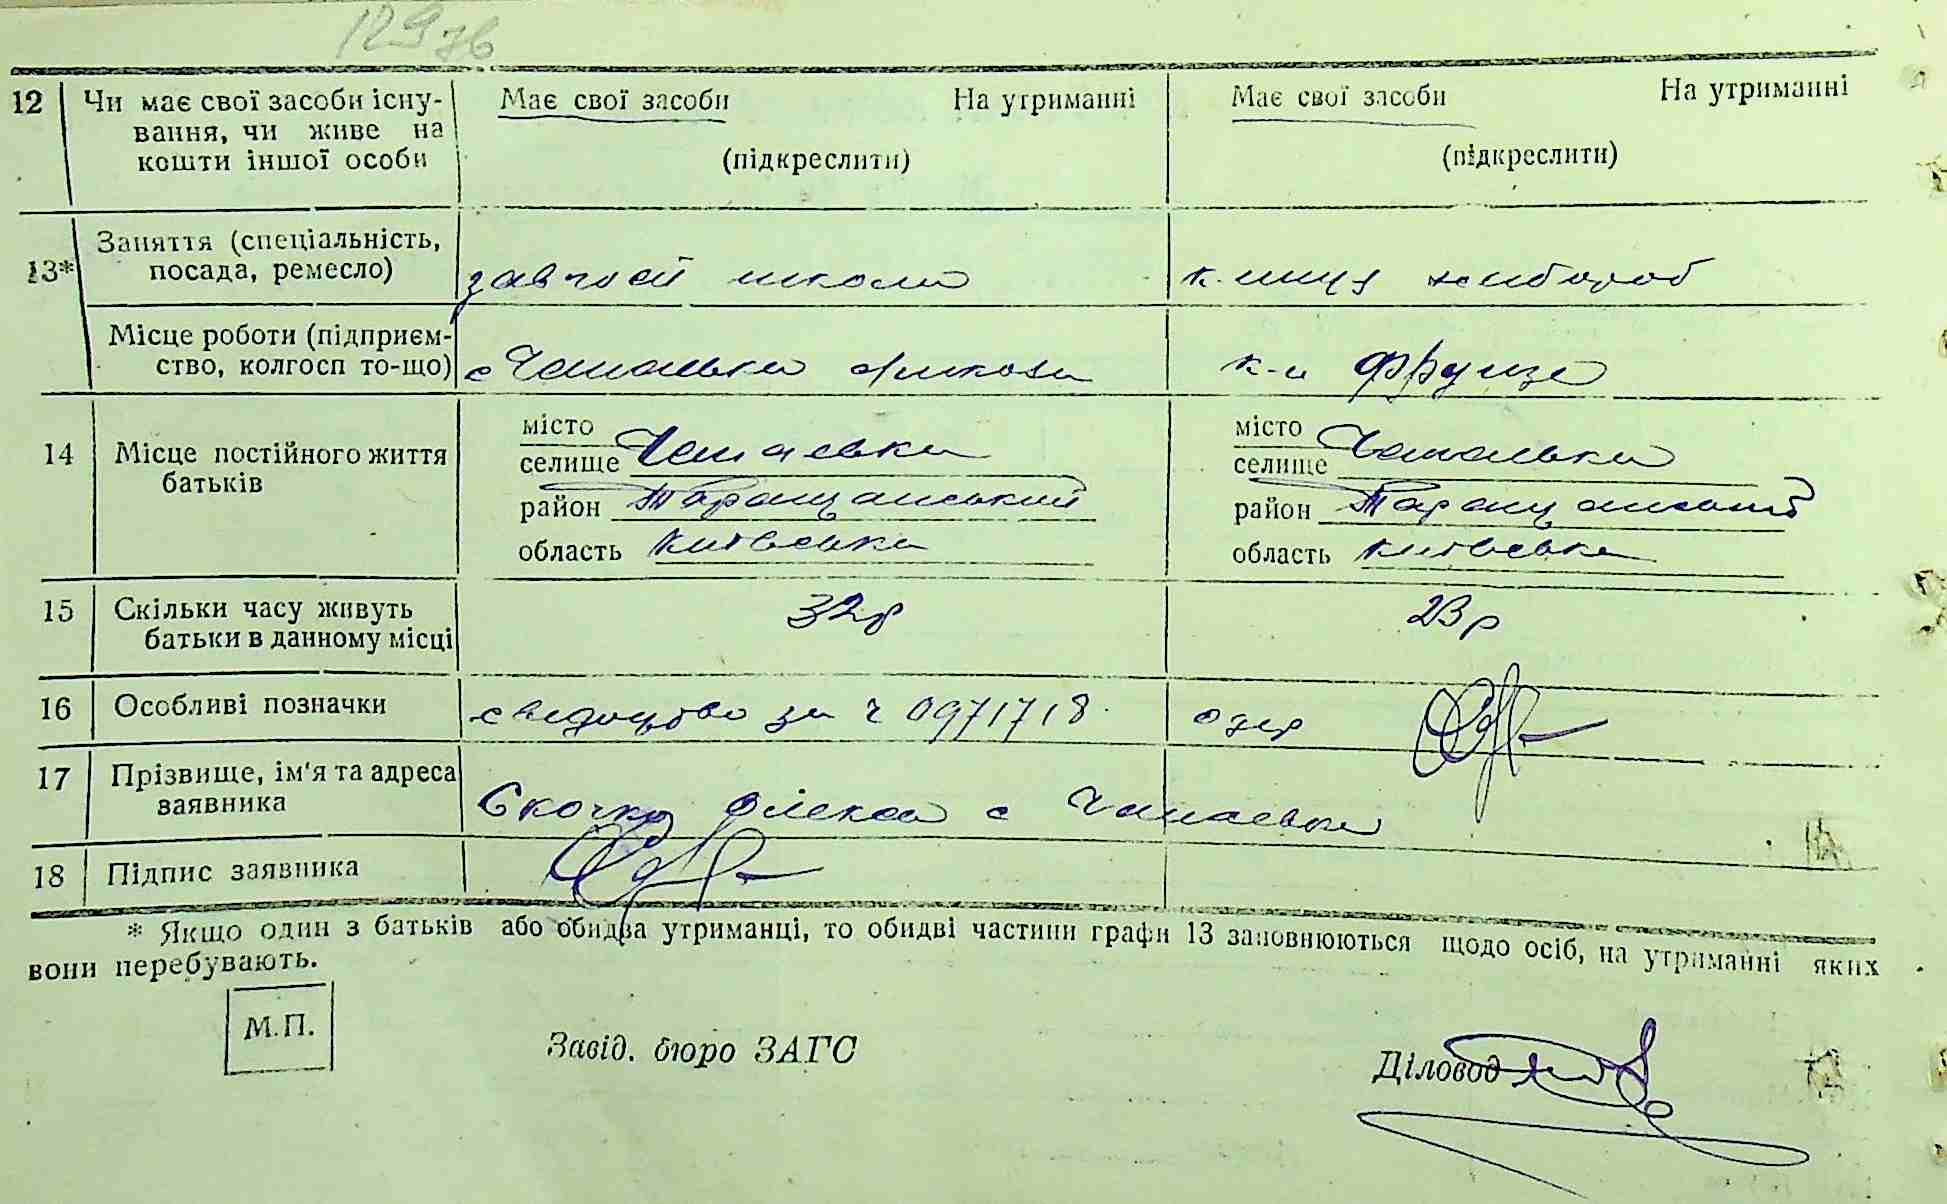 129 зв
12 Чи має свої засоби існу- Має свої засоби На утриманні Має свої засоби На утриманні
вання, чи живе на
кошти іншої особи (підкреслити) (підкреслити)
13* Заняття (спеціальність,
посада, ремесло) школи к-ниця хлібороб
Місце роботи (підприєм-
ство, колгосп то-що) с к-п Фрунзе
14 Місце постійного життя
батьків
місто
селище Чапаєвка
район Таращанський
область Київська
місто
селище Чапаєвка
район Таращанський
область Київська
15 Скільки часу живуть
батьки в данному місці 32р 23р
16 Особливі позначки свидоцтво за ч 0971718
17 Прізвище, ім'я та адреса
заявника Скочко Олекса с Чапаєвка
18 Підпис заявника
* Якщо один з батьків або обидва утриманці, то обидві частини графи 13 заповнюються щодо осіб, на утриманні яких
вони перебувають.
М.П.
Завід. бюро ЗАГС Діловод